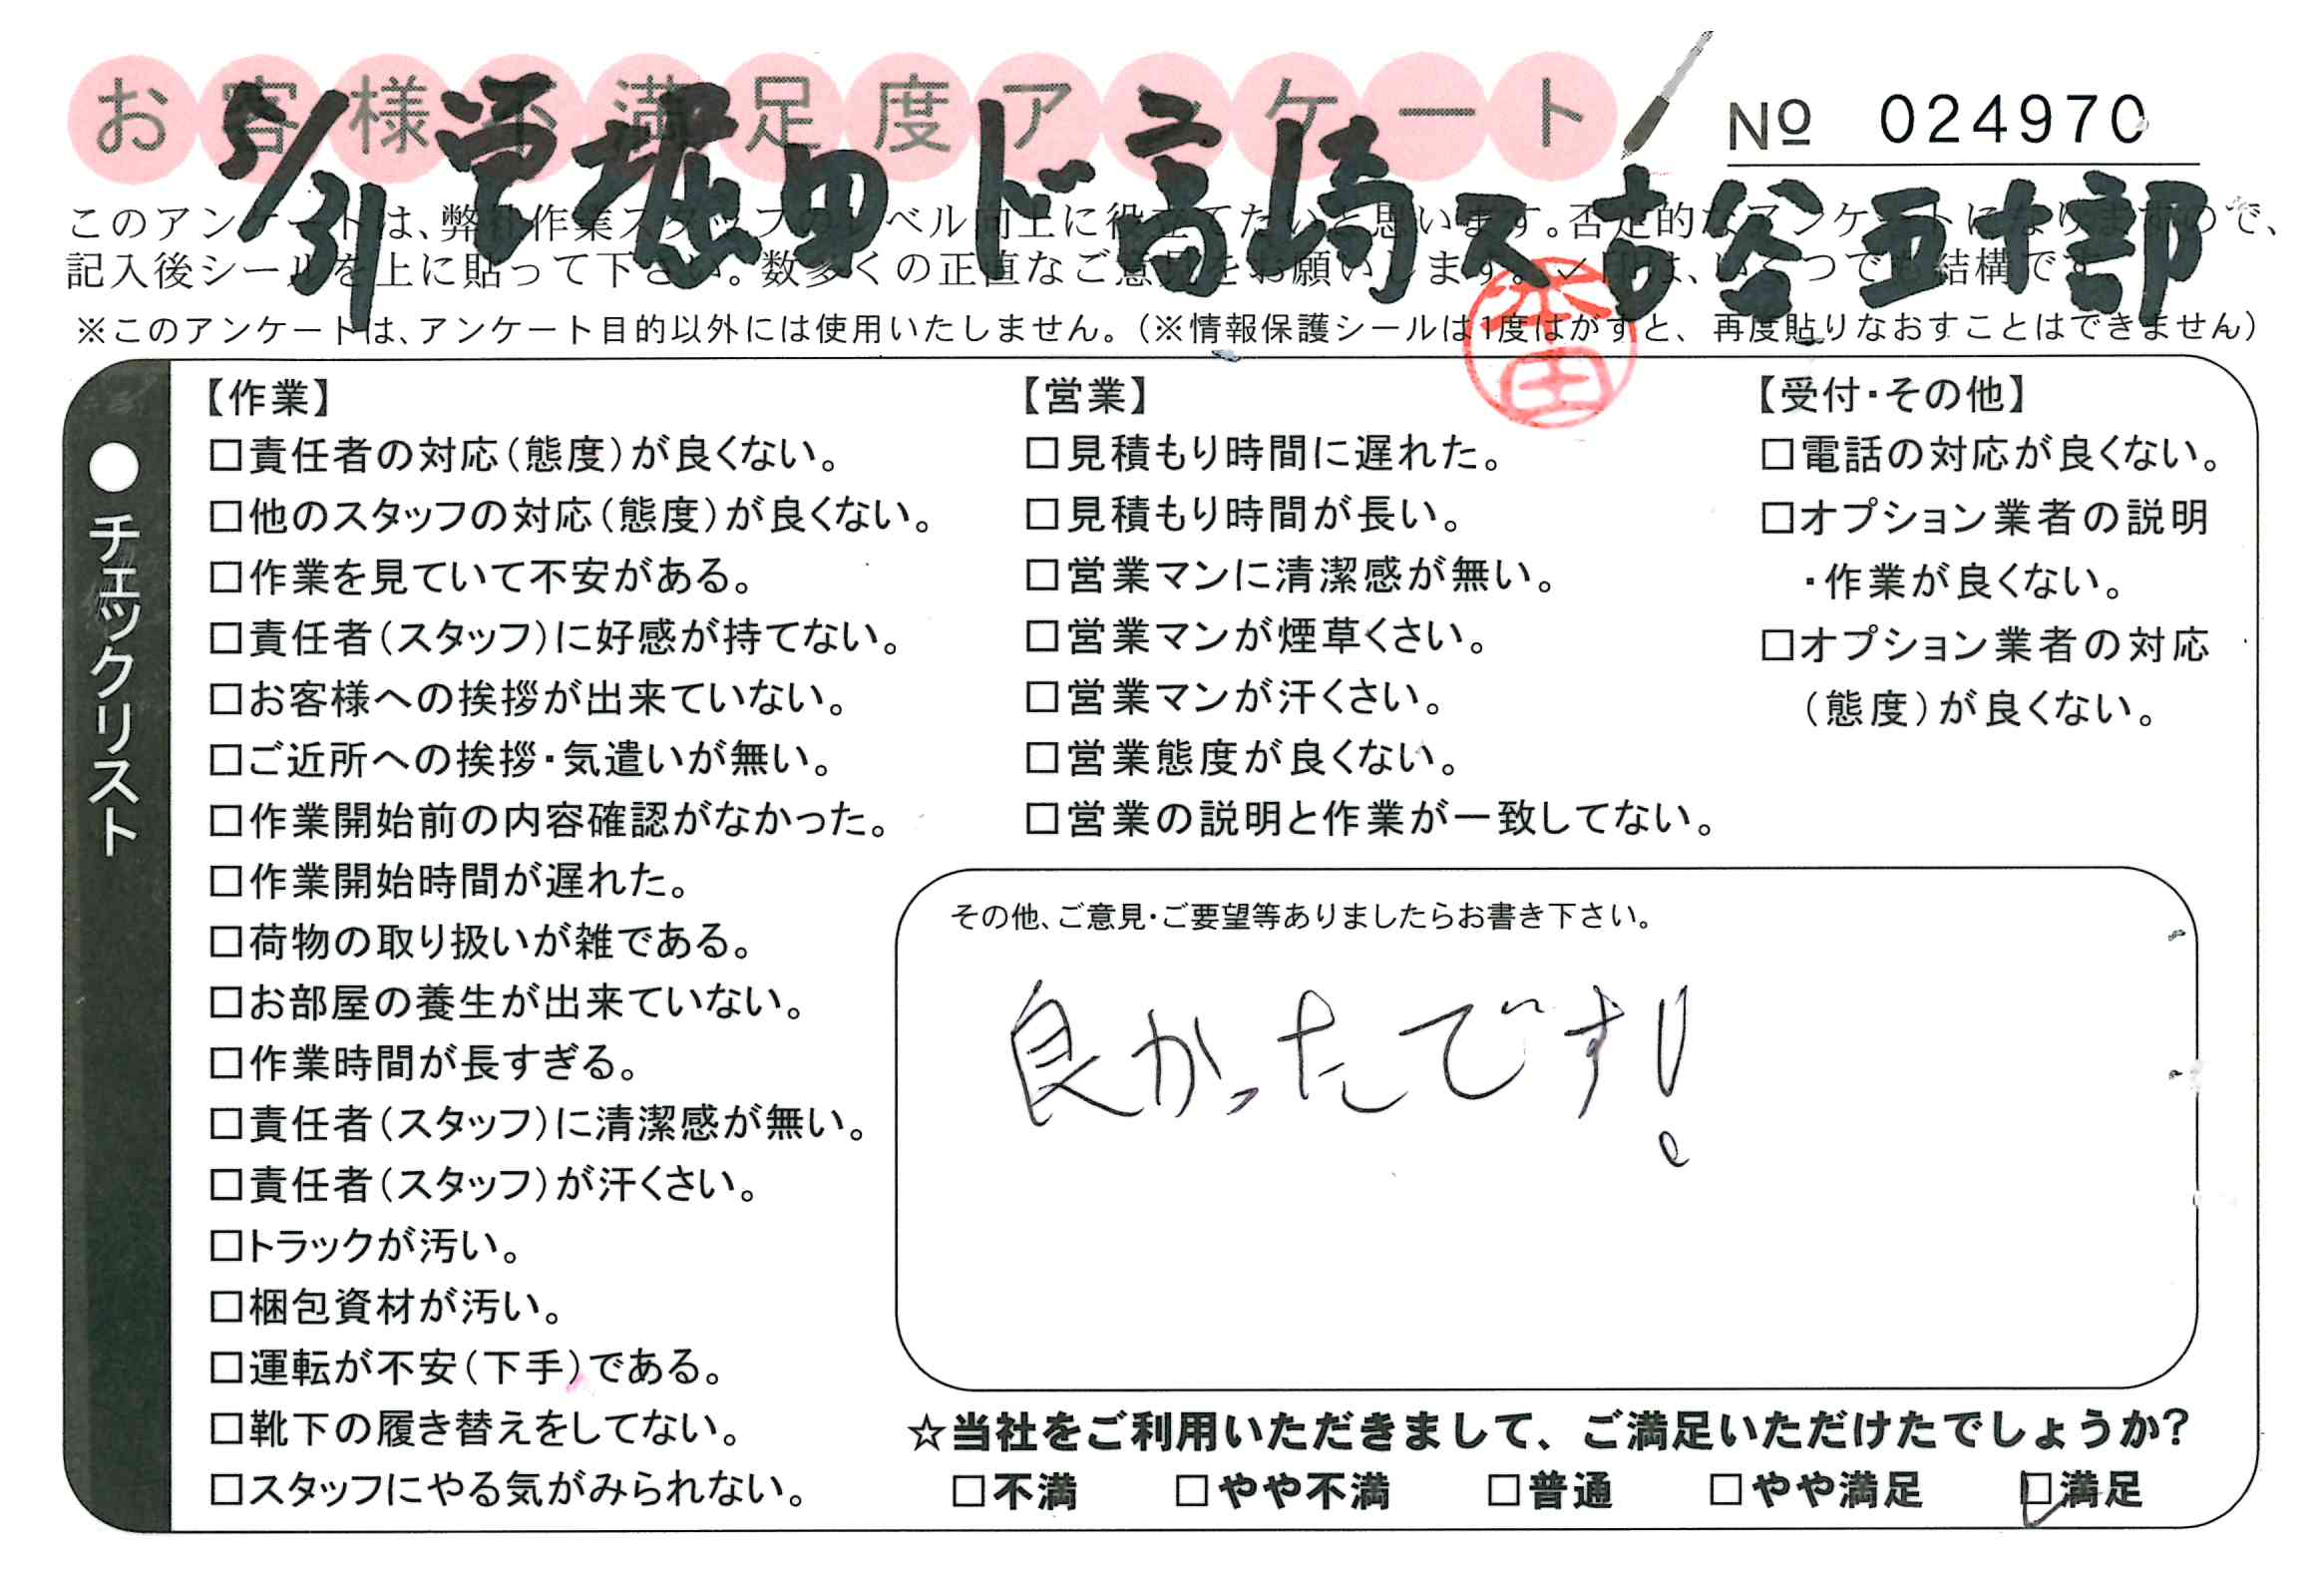 お客様不満足度アンケート
№ 024970
5/31 営堀田 ド高崎 ス古谷 五十部
このアンケートは、弊社作業スタッフのレベル向上に役立てたいと思います。否定的なアンケートになりますので、
記入後シールを上に貼って下さい。数多くの正直なご意見をお願いします。✓印は、いくつでも結構です。
※このアンケートは、アンケート目的以外には使用いたしません。(※情報保護シールは1度はがすと、再度貼りなおすことはできません)
本田
●チェックリスト
【作業】
□責任者の対応(態度)が良くない。
□他のスタッフの対応(態度)が良くない。
□作業を見ていて不安がある。
□責任者(スタッフ)に好感が持てない。
□お客様への挨拶が出来ていない。
□ご近所への挨拶・気遣いが無い。
□作業開始前の内容確認がなかった。
□作業開始時間が遅れた。
□荷物の取り扱いが雑である。
□お部屋の養生が出来ていない。
□作業時間が長すぎる。
□責任者(スタッフ)に清潔感が無い。
□責任者(スタッフ)が汗くさい。
□トラックが汚い。
□梱包資材が汚い。
□運転が不安(下手)である。
□靴下の履き替えをしてない。
□スタッフにやる気がみられない。
【営業】
□見積もり時間に遅れた。
□見積もり時間が長い。
□営業マンに清潔感が無い。
□営業マンが煙草くさい。
□営業マンが汗くさい。
□営業態度が良くない。
□営業の説明と作業が一致してない。
【受付・その他】
□電話の対応が良くない。
□オプション業者の説明
・作業が良くない。
□オプション業者の対応
(態度)が良くない。
その他、ご意見・ご要望等ありましたらお書き下さい。
良かったです!
☆当社をご利用いただきまして、ご満足いただけたでしょうか?
□不満 □やや不満 □普通 □やや満足 ☑満足